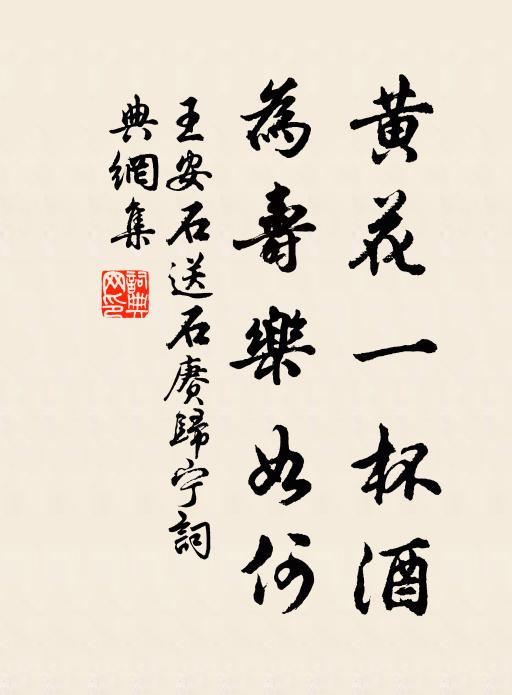 黄花一杯酒
為壽樂如何
王安石送石賡歸宁詞
典網集
詞典網印